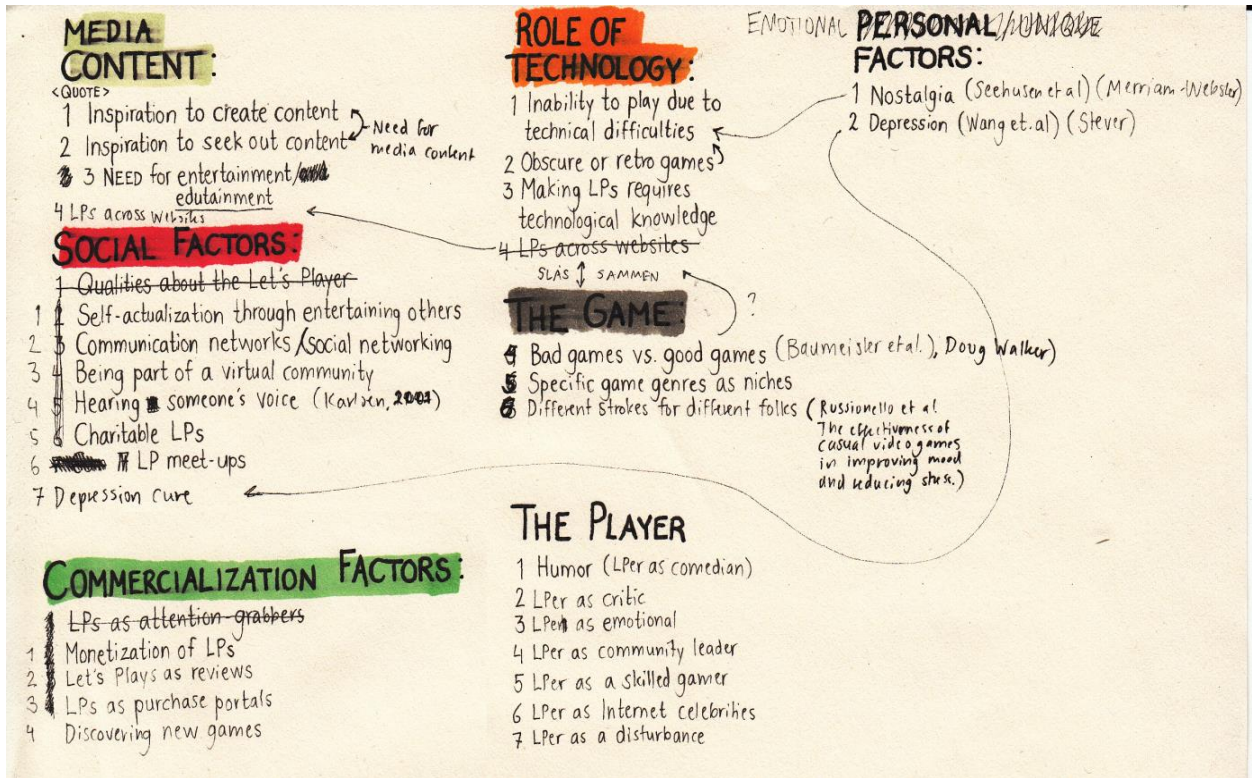 MEDIA
CONTENT:
<QUOTE>
1 Inspiration to create content
2 Inspiration to seek out content
Need for
media content
3 NEED for entertainment/
edutainment
4 LPs across websites
SOCIAL FACTORS:
1 Qualities about the Let's Player
1 Self-actualization through entertaining others
2 Communication networks/social networking
3 Being part of a virtual community
4 Hearing someone's voice (Karlsen, )
5 Charitable LPs
6 LP meet-ups
7 Depession cure
COMMERCIALIZATION FACTORS:
LPs as attention-grabbers
1 Monetization of LPs
2 Let's Plays as reviews
3 LPs as purchase portals
4 Discovering new games
ROLE OF
TECHNOLOGY:
1 Inability to play due to
technical difficulties
2 Obscure or retro games
3 Making LPs requires
technological knowledge
4 LPs across websites
SLÅS SAMMEN
?
THE GAME:
Bad games vs. good games (Baumeister et al.), Doug Walker)
Specific game genres as niches
Different strokes for different folks (Russionello et al
The effectiveness of
casual video games
in improving mood
and reducing stress.)
THE PLAYER
1 Humor (LPer as comedian)
2 LPer as critic
3 LPer as emotional
4 LPer as community leader
5 LPer as a skilled gamer
6 LPer as Internet celebrities
7 LPer as a disturbance
EMOTIONAL PERSONAL/UNIQUE
FACTORS:
1 Nostalgia (Seehusen et al) (Merriam-Webster)
2 Depression (Wang et.al) (Stever)